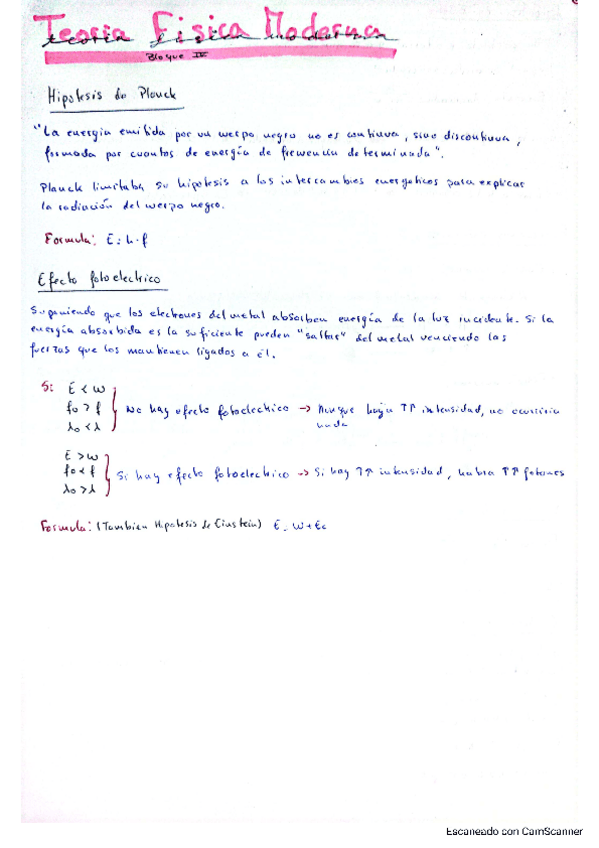 Teoria Fisica Moderna
Bloque IV
Hipotesis de Planck
"La energia emitida por un cuerpo negro no es continua, sino discontinua,
formada por cuantos de energía de frecuencia determinada".
Planck limitaba su hipotesis a los intercambios energeticos para explicar
la radiación del cuerpo negro.
Formula: E = h·f
Efecto fotoelectrico
Suponiendo que los electrones del metal absorben energía de la luz incidente. Si la
energía absorbida es la suficiente pueden "saltar" del metal venciendo las
fuerzas que los mantienen ligados a él.
Si E < W
f₀ > f } No hay efecto fotoelectrico → Aunque haya ↑↑ intensidad, no ocurriria
λ₀ < λ nada
E > W
f₀ < f } Si hay efecto fotoelectrico → Si hay ↑↑ intensidad, habra ↑↑ fotones
λ₀ > λ
Formula: (Tambien Hipotesis de Einstein) E = W + Ec
Escaneado con CamScanner